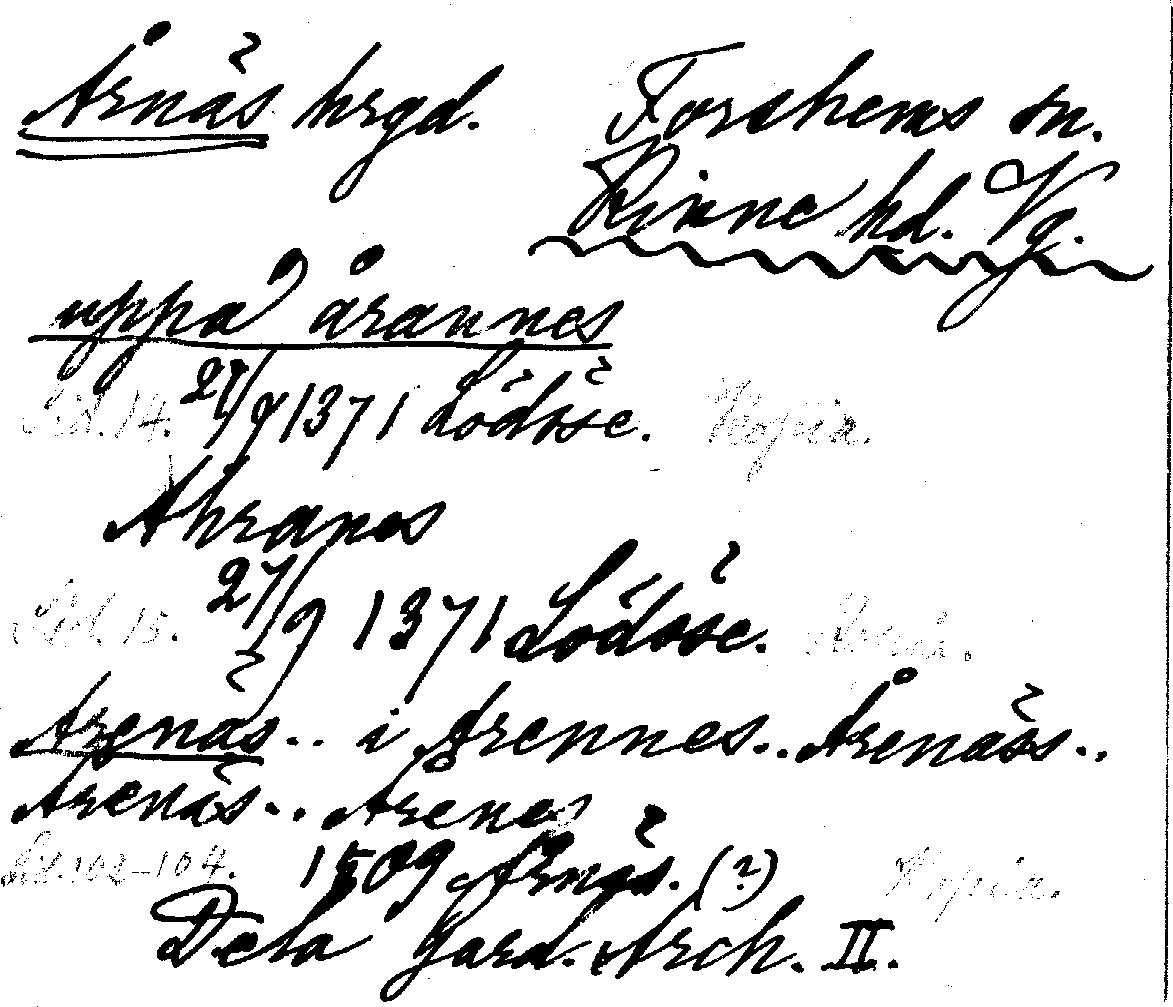 Årnäs hrgd. Forshems sn.
Kinne hd. Vg.
uppå årannes
Sid. 14. 27/9 1371 Lödöse. Kopia.
Ahranes
Sid. 15. 27/9 1371 Lödöse. Kopia.
Arenäs.. i Arennes.. Årenäss..
Arenäs.. Arenes
Sid. 102-104. 1509 Årnäs. (?) Kopia.
Dela Gard. Arch. II.